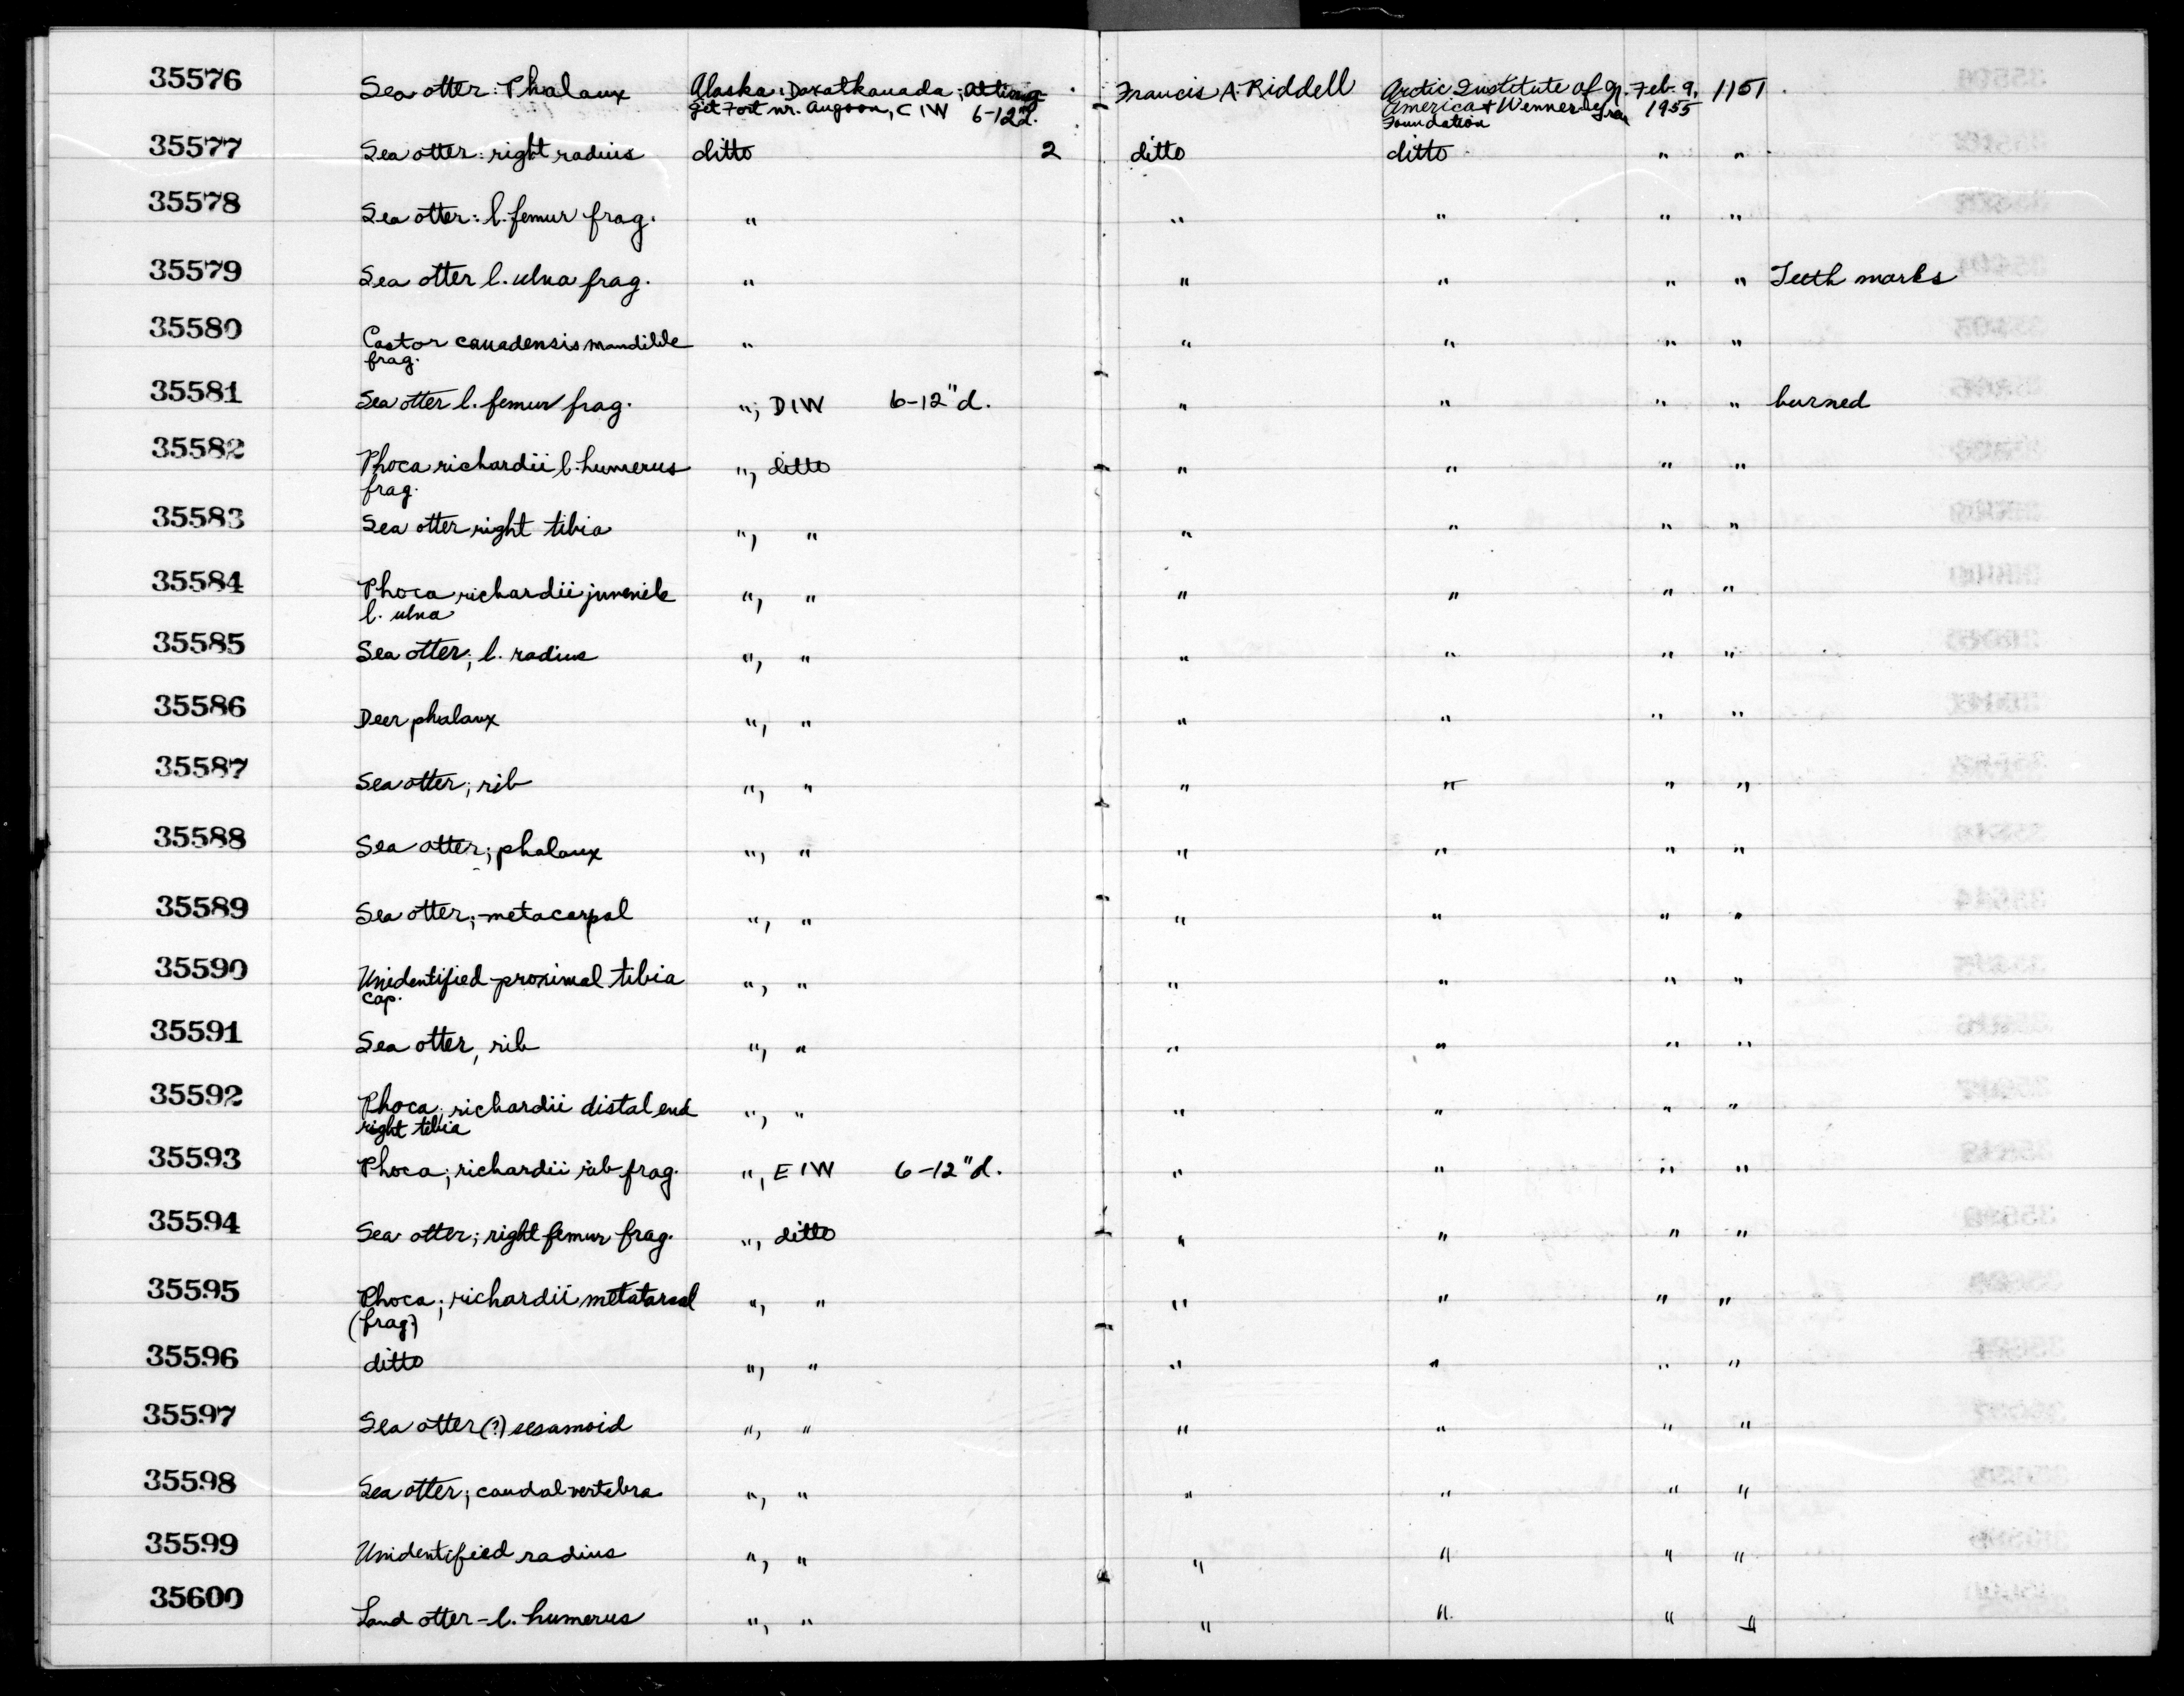 35576 Sea otter: Phalanx Alaska: Daxatkanada; 6-12"d. Francis A. Riddell Arctic Institute of N. Feb. 9, 1151
Fort nr. Angoon, C1W America & Wenner-Gren 1955
Foundation
35577 Sea otter: right radius ditto 2 ditto ditto " "
35578 Sea otter: l. femur frag. " " " " "
35579 Sea otter l. ulna frag. " " " " " Teeth marks
35580 Castor canadensis mandible " " " " "
frag.
35581 Sea otter l. femur frag. "; D1W 6-12"d. " " " " burned
35582 Phoca richardii l. humerus ", ditto " " " "
frag.
35583 Sea otter right tibia ", " " " " "
35584 Phoca richardii juvenile ", " " " " "
l. ulna
35585 Sea otter; l. radius ", " " " " "
35586 Deer phalanx ", " " " " "
35587 Sea otter; rib ", " " " " "
35588 Sea otter; phalanx ", " " " " "
35589 Sea otter; metacarpal ", " " " " "
35590 Unidentified proximal tibia ", " " " " "
cap.
35591 Sea otter, rib ", " " " " "
35592 Phoca; richardii distal end ", " " " " "
right tibia
35593 Phoca; richardii rib frag. ", E1W 6-12"d. " " " "
35594 Sea otter; right femur frag. ", ditto " " " "
35595 Phoca; richardii metatarsal ", " " " " "
(frag.)
35596 ditto ", " " " " "
35597 Sea otter (?) sesamoid ", " " " " "
35598 Sea otter; caudal vertebra ", " " " " "
35599 Unidentified radius ", " " " " "
35600 Land otter - l. humerus ", " " " " "